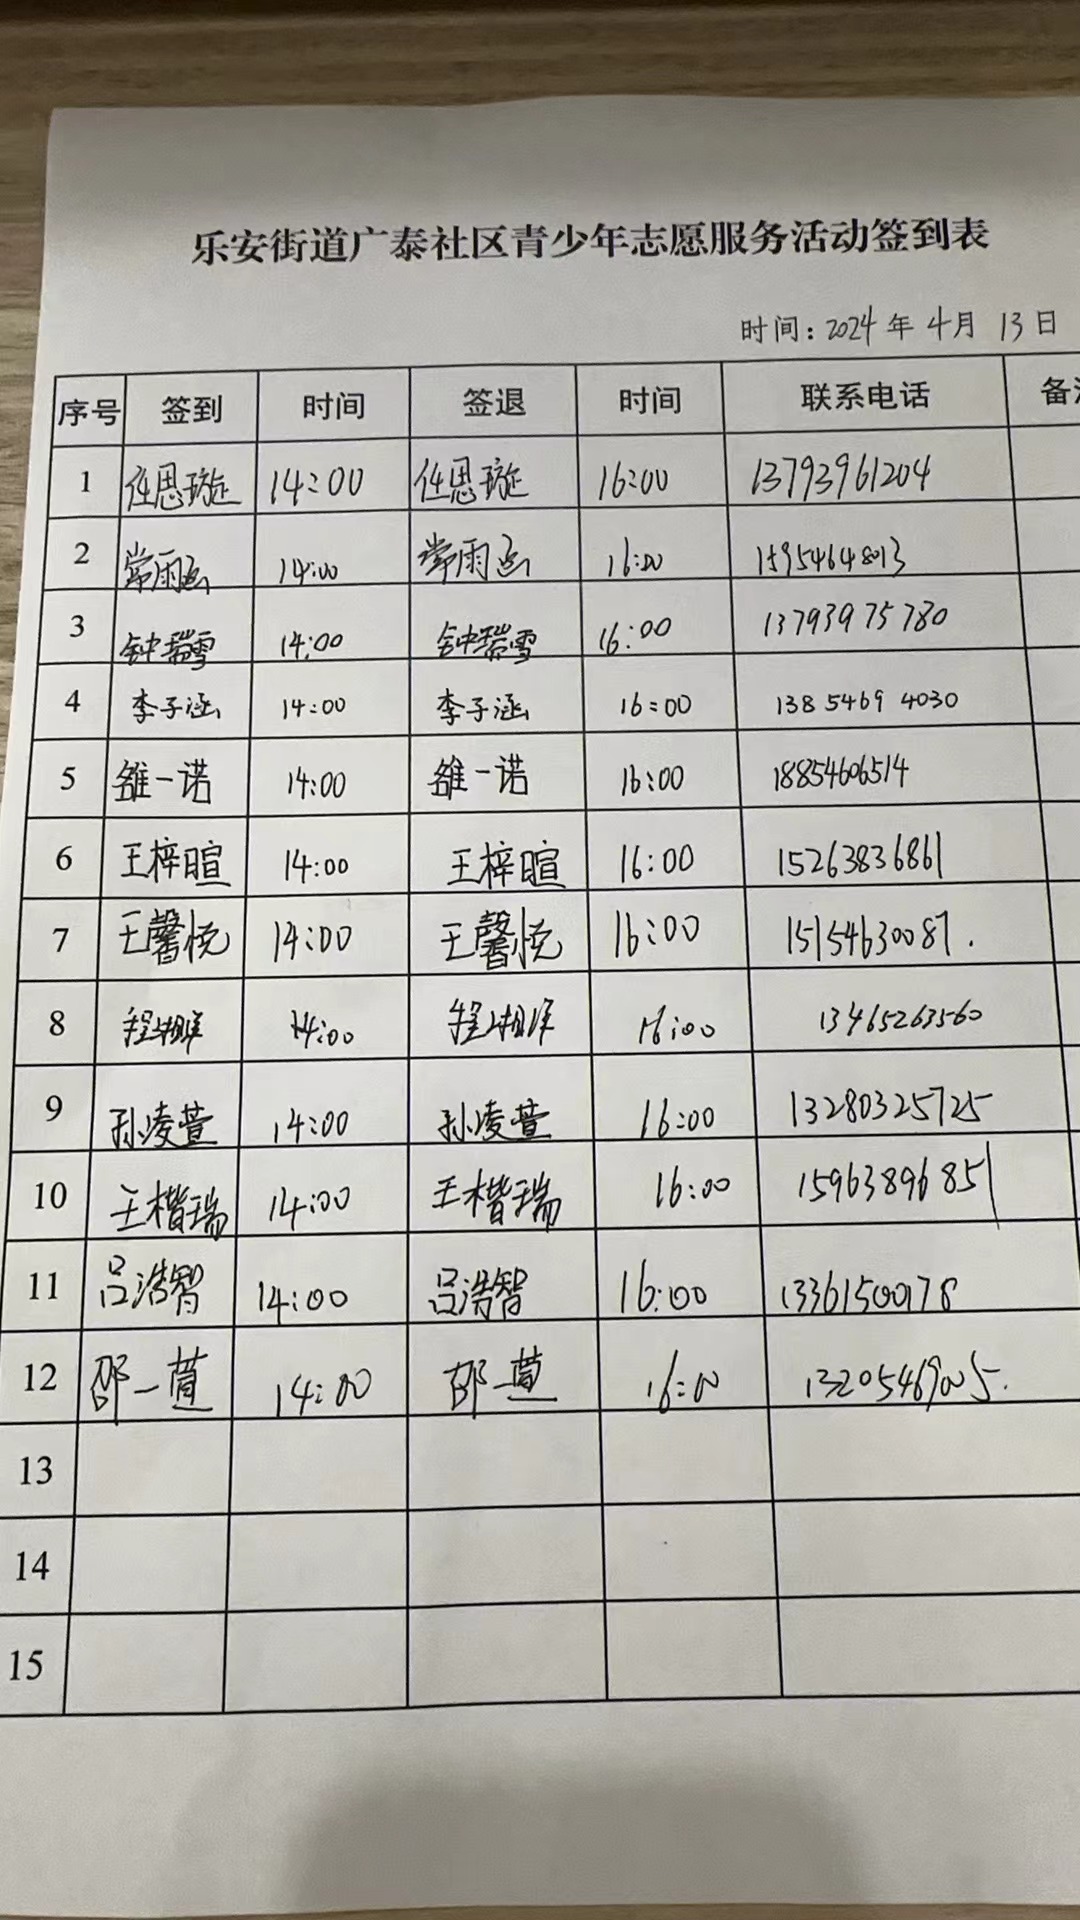 乐安街道广泰社区青少年志愿服务活动签到表
时间：2024年 4月 13日
序号 签到 时间 签退 时间 联系电话 备
1 任思璇 14:00 任思璇 16:00 13793961204
2 常雨 14:00 常雨 16:00 15954648013
3 钟瑞雪 14:00 钟瑞雪 16:00 13793975780
4 李子涵 14:00 李子涵 16:00 138 5469 4030
5 雒一诺 14:00 雒一诺 16:00 18854606514
6 王梓暄 14:00 王梓暄 16:00 15263836861
7 王馨悦 14:00 王馨悦 16:00 15154630087.
8 14:00 16:00 13465263560
9 孙凌萱 14:00 孙凌萱 16:00 13280325725
10 王楷瑞 14:00 王楷瑞 16:00 15963896851
11 吕浩智 14:00 吕浩智 16:00 13361500178
12 邵一萱 14:00 邵一萱 16:00 13205469005.
13
14
15